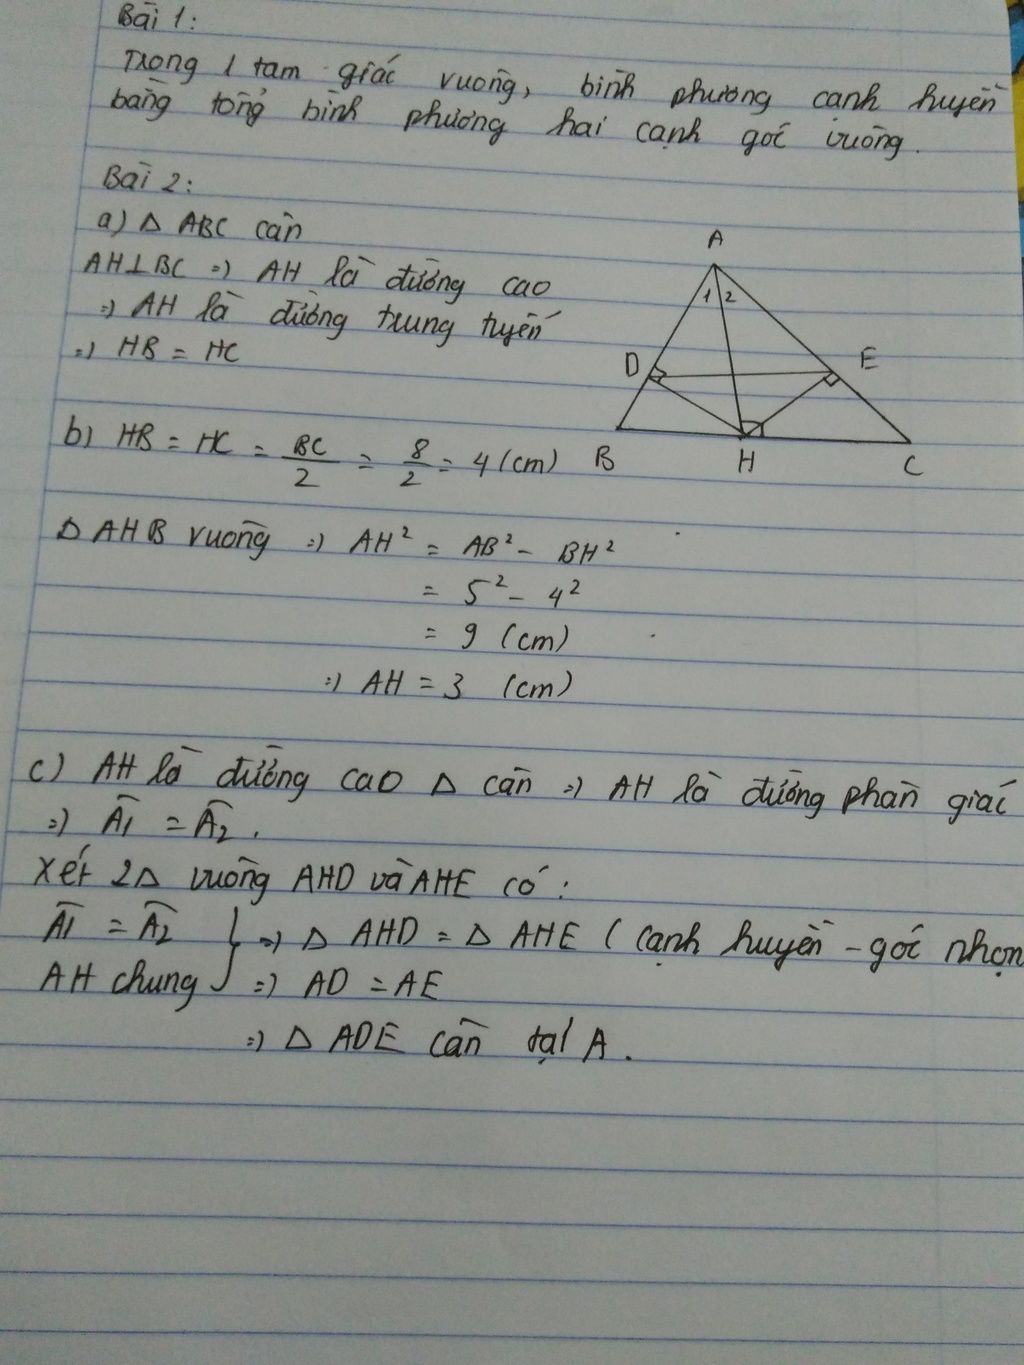 Bài 1:
Trong 1 tam giác vuông, bình phương cạnh huyền
bằng tổng bình phương hai cạnh góc vuông.
Bài 2:
a) Δ ABC cân
AH⊥BC => AH là đường cao
=> AH là đường trung tuyến
=> HB = HC
A
1 2
D
E
B
H
C
b) HB = HC = BC/2 = 8/2 = 4 (cm)
Δ AHB vuông => AH² = AB² - BH²
= 5² - 4²
= 9 (cm)
=> AH = 3 (cm)
c) AH là đường cao Δ cân => AH là đường phân giác
=> Â1 = Â2.
Xét 2Δ vuông AHD và AHE có:
Â1 = Â2 } => Δ AHD = Δ AHE (cạnh huyền - góc nhọn
AH chung } => AD = AE
=> Δ ADE cân tại A.